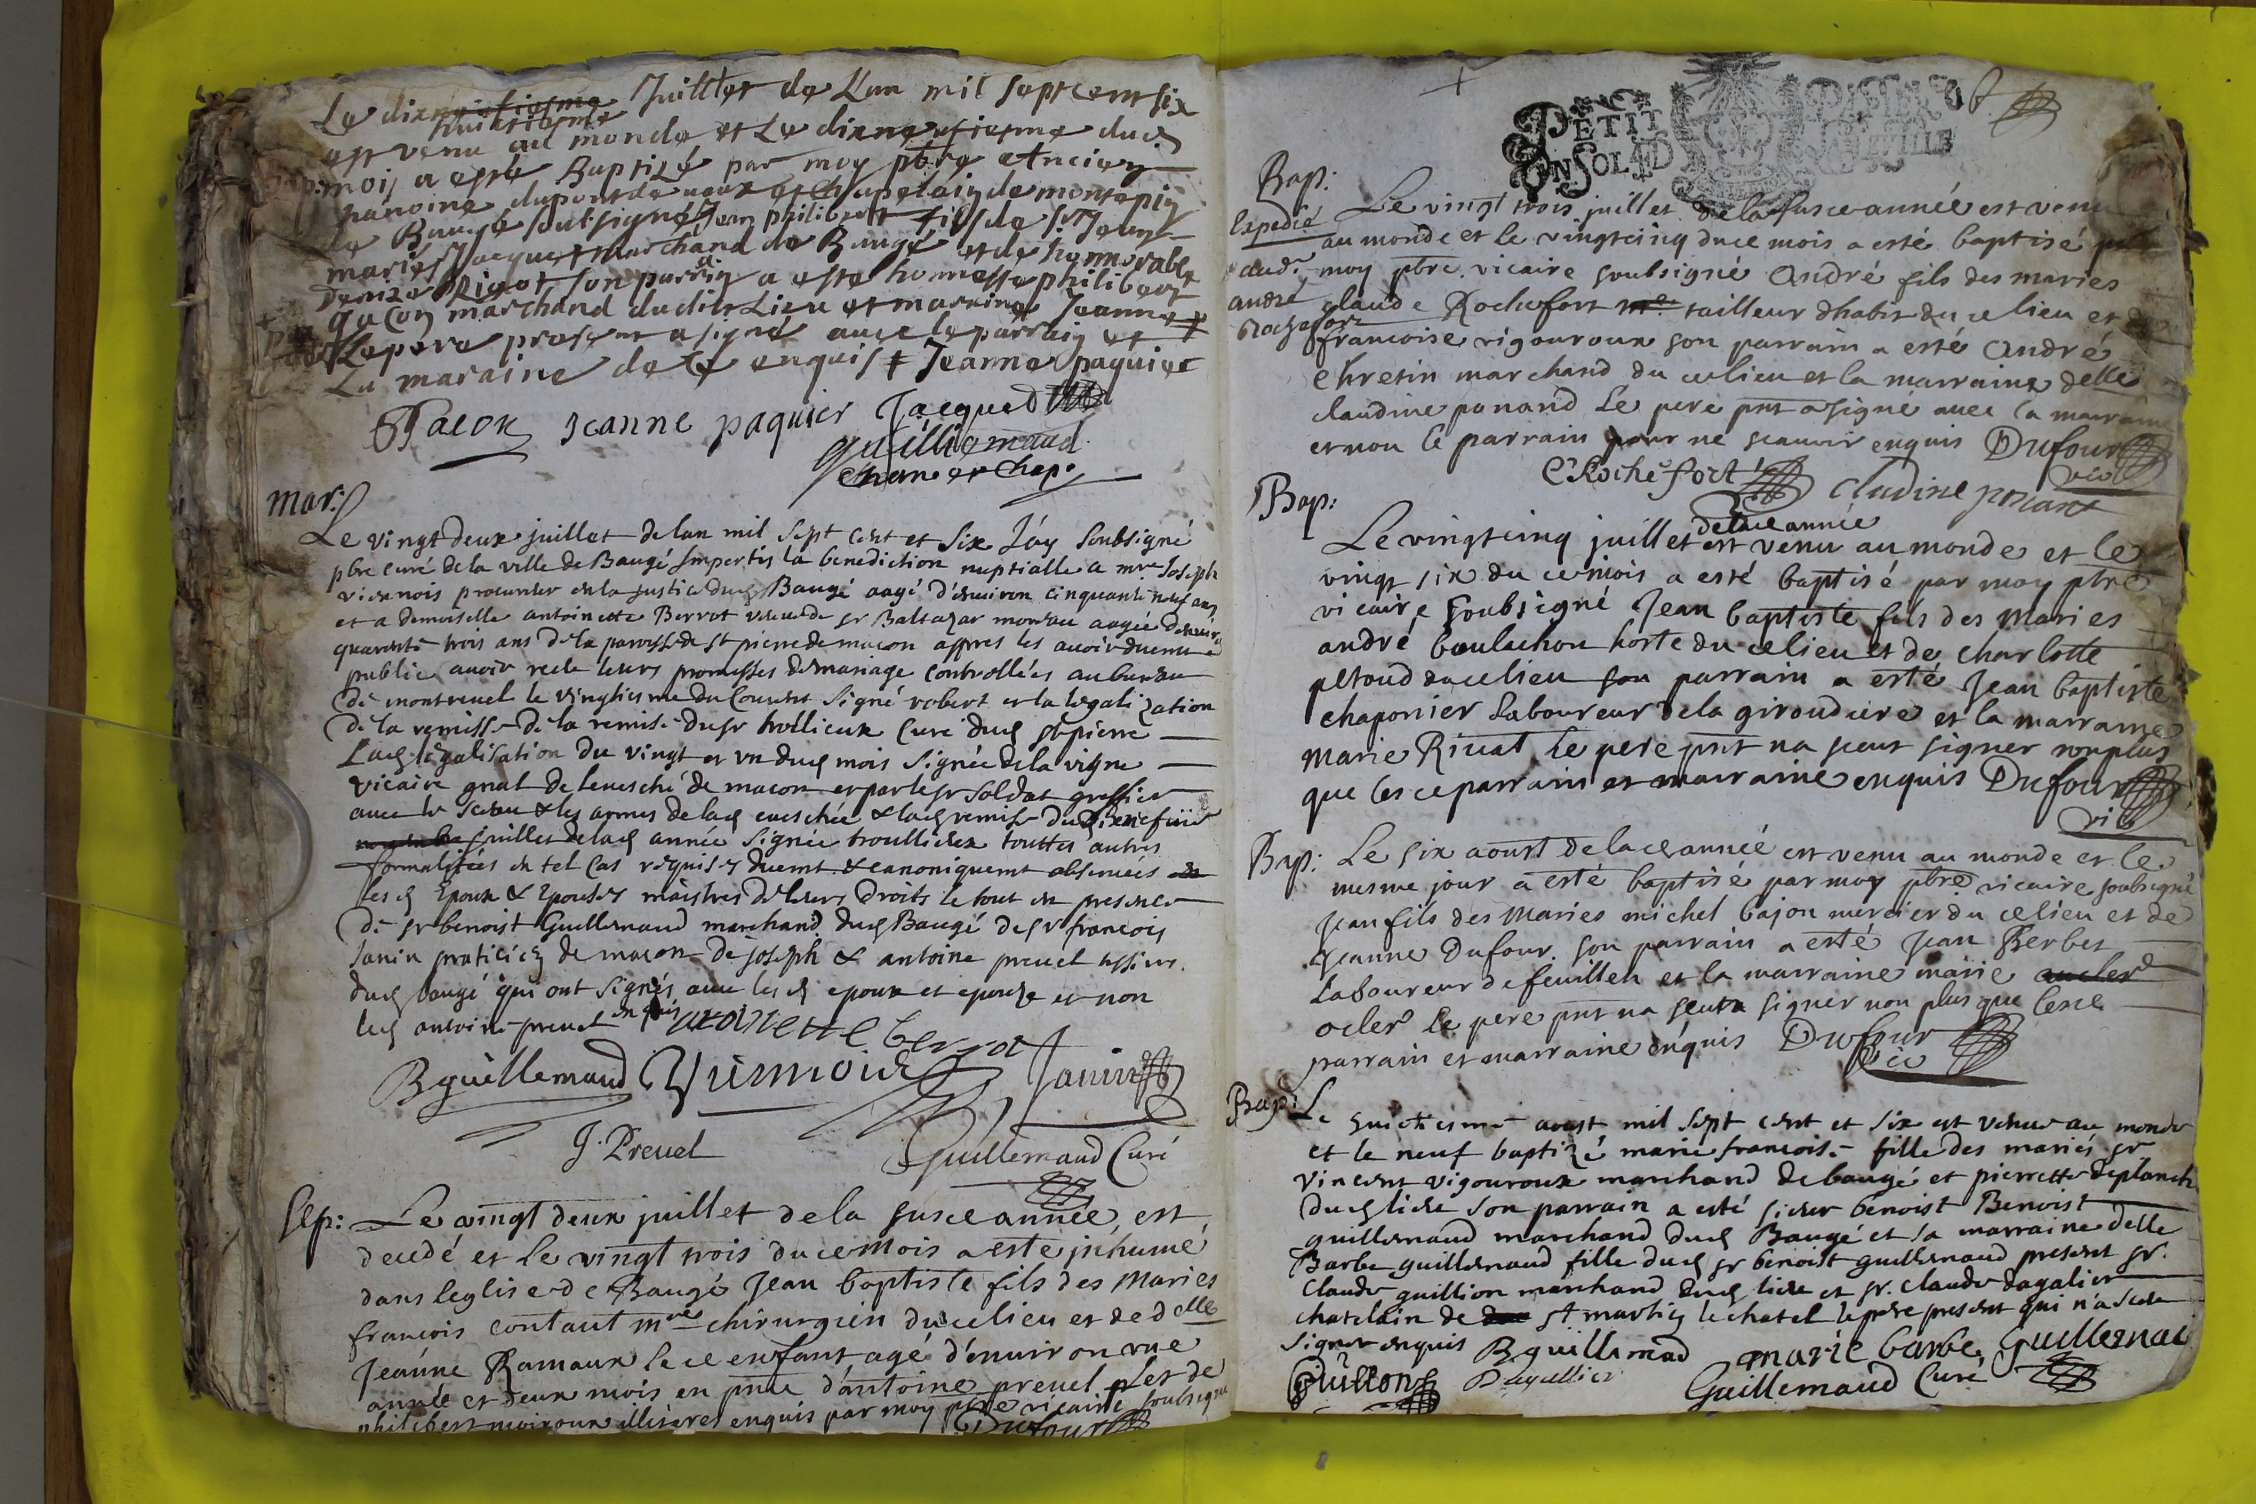 Le dixneufiesme Juillet de L'an mil sept cent six
huictiesme
est venu au monde et Le dixneufiesme dud
mois a esté Baptizé par moy pbre Ancien
chanoine du pont de vaux et chapelain de montepin
de Baugé soubsigné Jean philibert fils de sr Jean
mariés Jacquet marchand de Baugé et de honnorable
Denize Pigot son parrain a esté honneste philibert
marchand dudit Lieu et maraine Jeanne
Le pere present a signé avec le parrain et
La maraine de ce enquis Jeanne paquier
Jeanne paquier Jacquet
guilliemaud
chano et chap
mar:
Le vingt deux juillet de lan mil sept cent et six Jáy soubsigné
pbre curé de la ville de Baugé Impertis la benediction nuptialle a mre Joseph
viennois procureur en la justice dud Baugé aagé d'environ cinquante neuf ans
et a demoiselle antoinette Berrot veuve de sr Baltazar moreau aagée denviron
quarente trois ans de la paroisse de st pierre de macon appres les avoir duement
publie avoir receu leurs promesses de mariage controllées au bureau
de montrevel le vingtiesme du Courant signé robert et la legalization
de la remisse de la remise du sr trollieur Curé dud st pierre
Lad legalisation du vingt et un dud mois signée de la vigne
vicaire gnal de leuesché de macon et par le sr soldat greffier
avec le sceau & les armes de lad eueschée & lad remise du
juillet de lad année signée trouillieur touttes autres
formalitées en tel cas requises duemt & canoniquemt observées
les d Epoux & Epouses maistres de leurs Droits le tout en presence
de sr benoist Guillemaud marchand dud Baugé de sr françois
Janin praticien de macon de joseph & antoine prevel tissiers
dud baugé qui ont signés avec les d epoux et epouze et non
led antoine prevel enquis antoinette berrot
B guillemaud Viennois Janin
J. Prevel
Guillemaud Curé
Sep: Le vingt deux juillet de la susce année, est
decedé et le vingt trois du ce mois a esté inhumé
dans leglise de Baugé Jean baptiste fils des Mariés
françois contaut mre chirurgien du ce lieu et de delle
Jeanne Ramaux le ce enfant agé d'environ une
année et deux mois en pnce d'antoine prevel et de
philibert moiroux illiteres enquis par moy pbre vicaire soubsigné
Dufour
PETIT PAPIER
UN SOL
Bap:
Expedié Le vingt trois juillet de la susce année est venu
au monde et le vingtcinq du ce mois a esté baptisé par
aud. moy pbre vicaire soubsigné André fils des maries
andré claude Rochefort tailleur dhabit du ce lieu et de
Rochefort francoise vigouroux son parrain a esté André
Chretin marchand du ce lieu et la marraine delle
claudine ponard Le pere pnt a signé avec la marraine
et non le parrain pour ne sçavoir enquis Dufour
C Rochefort cludine ponard vic
Bap:
de lace année
Le vingtcinq juillet est venu au monde et le
vingt six du ce mois a esté baptisé par moy pbre
vicaire soubsigné Jean baptiste fils des Maries
andré boulachon horte du ce lieu et de charlotte
petoud du ce lieu son parrain a esté Jean baptiste
chaponier Laboureur de la giroudiere et la marraine
Marie Rivat Le pere pnt na sceut signer nonplus
que les ce parrain et marraine enquis Dufour
vic
Bap: Le six aoust de lace année est venu au monde et le
mesme jour a esté baptisé par moy pbre vicaire soubsigné
Jean fils des Maries michel bajon mercier du ce lieu et de
Jeanne Dufour son parrain a esté Jean Berbet
Laboureur de feuillen et la marraine marie
ocler Le pere pnt na sceut signer non plus que lesce
parrain et marraine enquis Dufour
vic
Bap: Le huictiesme aoust mil sept cent et six est venue au monde
et le neuf baptizé marie françoise fille des mariés sr
vincent vigouroux marchand de baugé et pierrette deplanch
dud lieu son parrain a esté sieur benoist Benoist
guillemaud marchand dud Baugé et sa marraine delle
Barbe guillemaud fille dud sr benoist guillemaud present sr.
Claude guillion marchand dud lieu et sr. claude dagalier
chatelain de st martin le chatel le pere present qui n'a sceu
signer enquis B guillemad marie barbe guillemau
Guillion Dagallier Guillemaud Curé